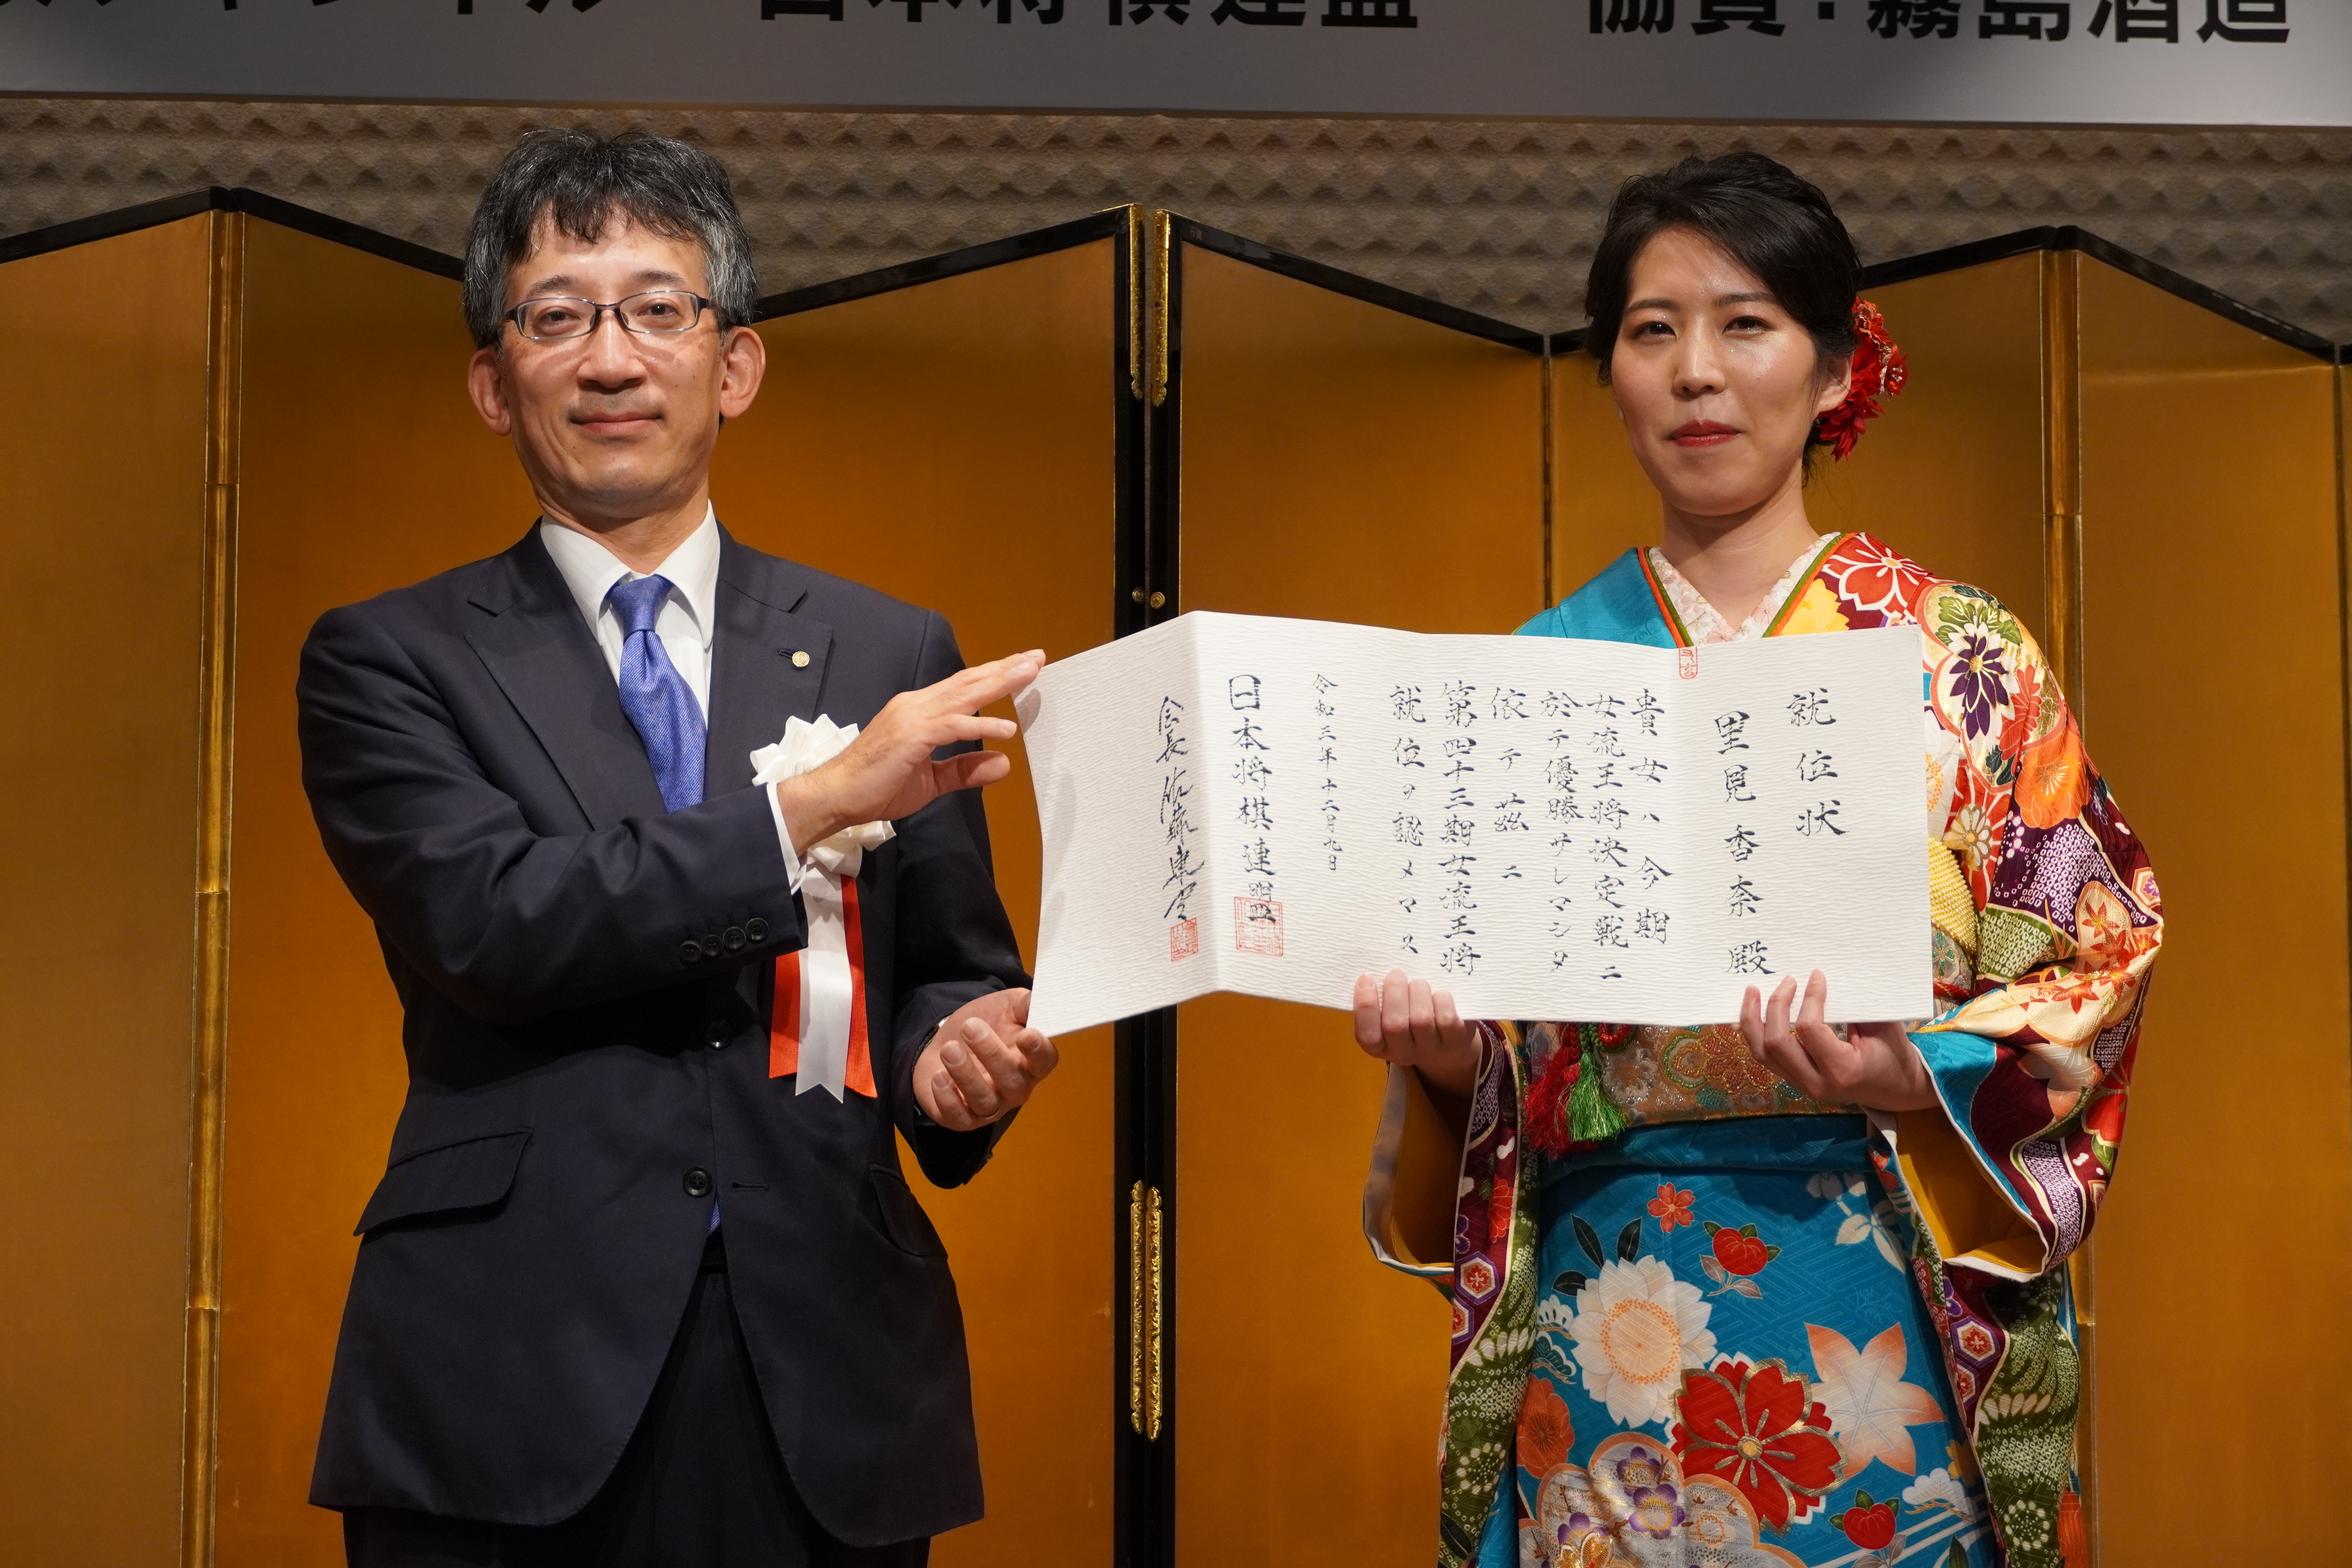 日本将棋連盟　協賛：霧島酒造
就位状
里見香奈殿
貴女ハ今期
女流王将決定戦ニ
於テ優勝サレマシタ
依テ茲ニ
第四十三期女流王将
就位ヲ認メマス
令和三年十二月九日
日本将棋連盟
会長 佐藤康光